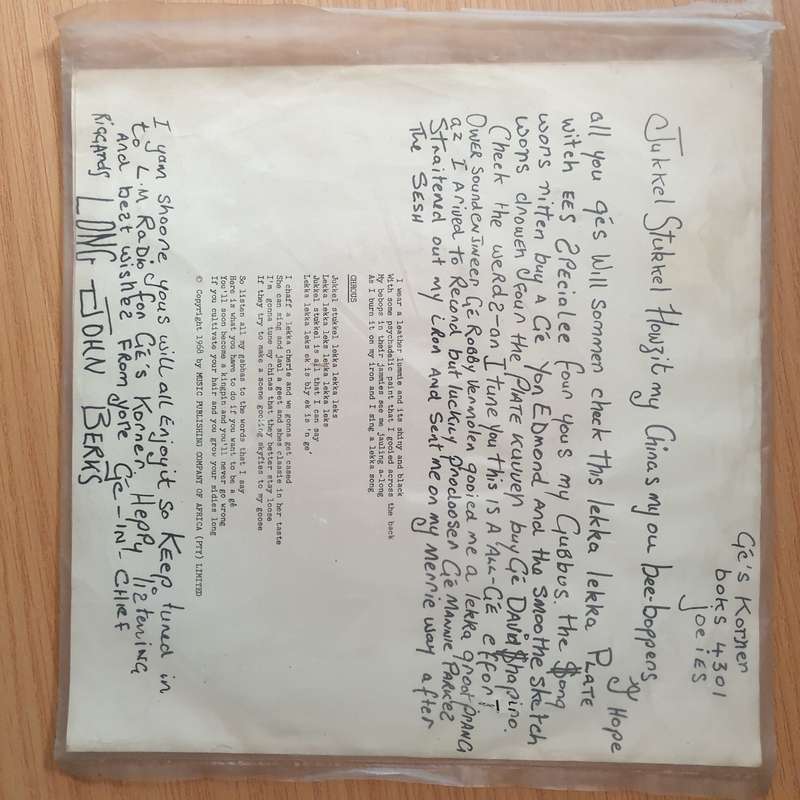 Gé's Korner
boks 4301
joeies
Jukkel Stukkel Howzit my Chinas my ou bee-boppers
Hope
all you gés will sommen check this lekka lekka PLATE
witch EES SPECIALEE four yous my Gubbus. the $ong
wors ritten buy A Gé Yon EDMOND And the SMOOthe sketch
wors drower four the PLATE Kuvver buy Gé DAVID $hapiro.
Check the werdz-on I tune you this is A 'ALL-Gé effort
Ower Sound enjineer Gé Robby Vermolen gooied me a lekka groot PRANG
az I Arived to Record but luckily prodooser Gé MANNIE PARKEZ
Straitened out my iRON And Sent me on my Merrie way after
The SESH
I wear a leather lummie and its shiny and black
With some psychadelic paint that I gooied across the back
My bebops in their jammies see me jauling a-long
As I burn it on my iron and I sing a lekka song
CHORUS
Jukkel stukkel lekka lekka leks
Lekka lekka leks lekka lekka leks
Jukkel stukkel is all that I can say
Lekka lekka leks ek is bly ek is 'n ge'
I chaff a lekka cherie and we gonna get cased
She can sing and jaul a geet and shes classie in her taste
I'm gonna tune my chinas that they better stay loose
If they try to make a scene gooiing skyfies to my goose
So listen all my gabbas to the words that I say
Here is what you have to do if you want to be a gê
You'll soon become a kingpin and you'll never go wrong
If you cultivate your hair and you grow your sidies long
© Copyright 1968 by MUSIC PUBLISHING COMPANY OF AFRICA (PTY) LIMITED
I yam shoore yous will all Enjoy it so KEEP tuned in
to L.M RADio for Gé's Korner. Heppy liztening
And bezt wishez from yore Gé-IN-CHIEF
RiGGARdS LONG JOHN BERKS